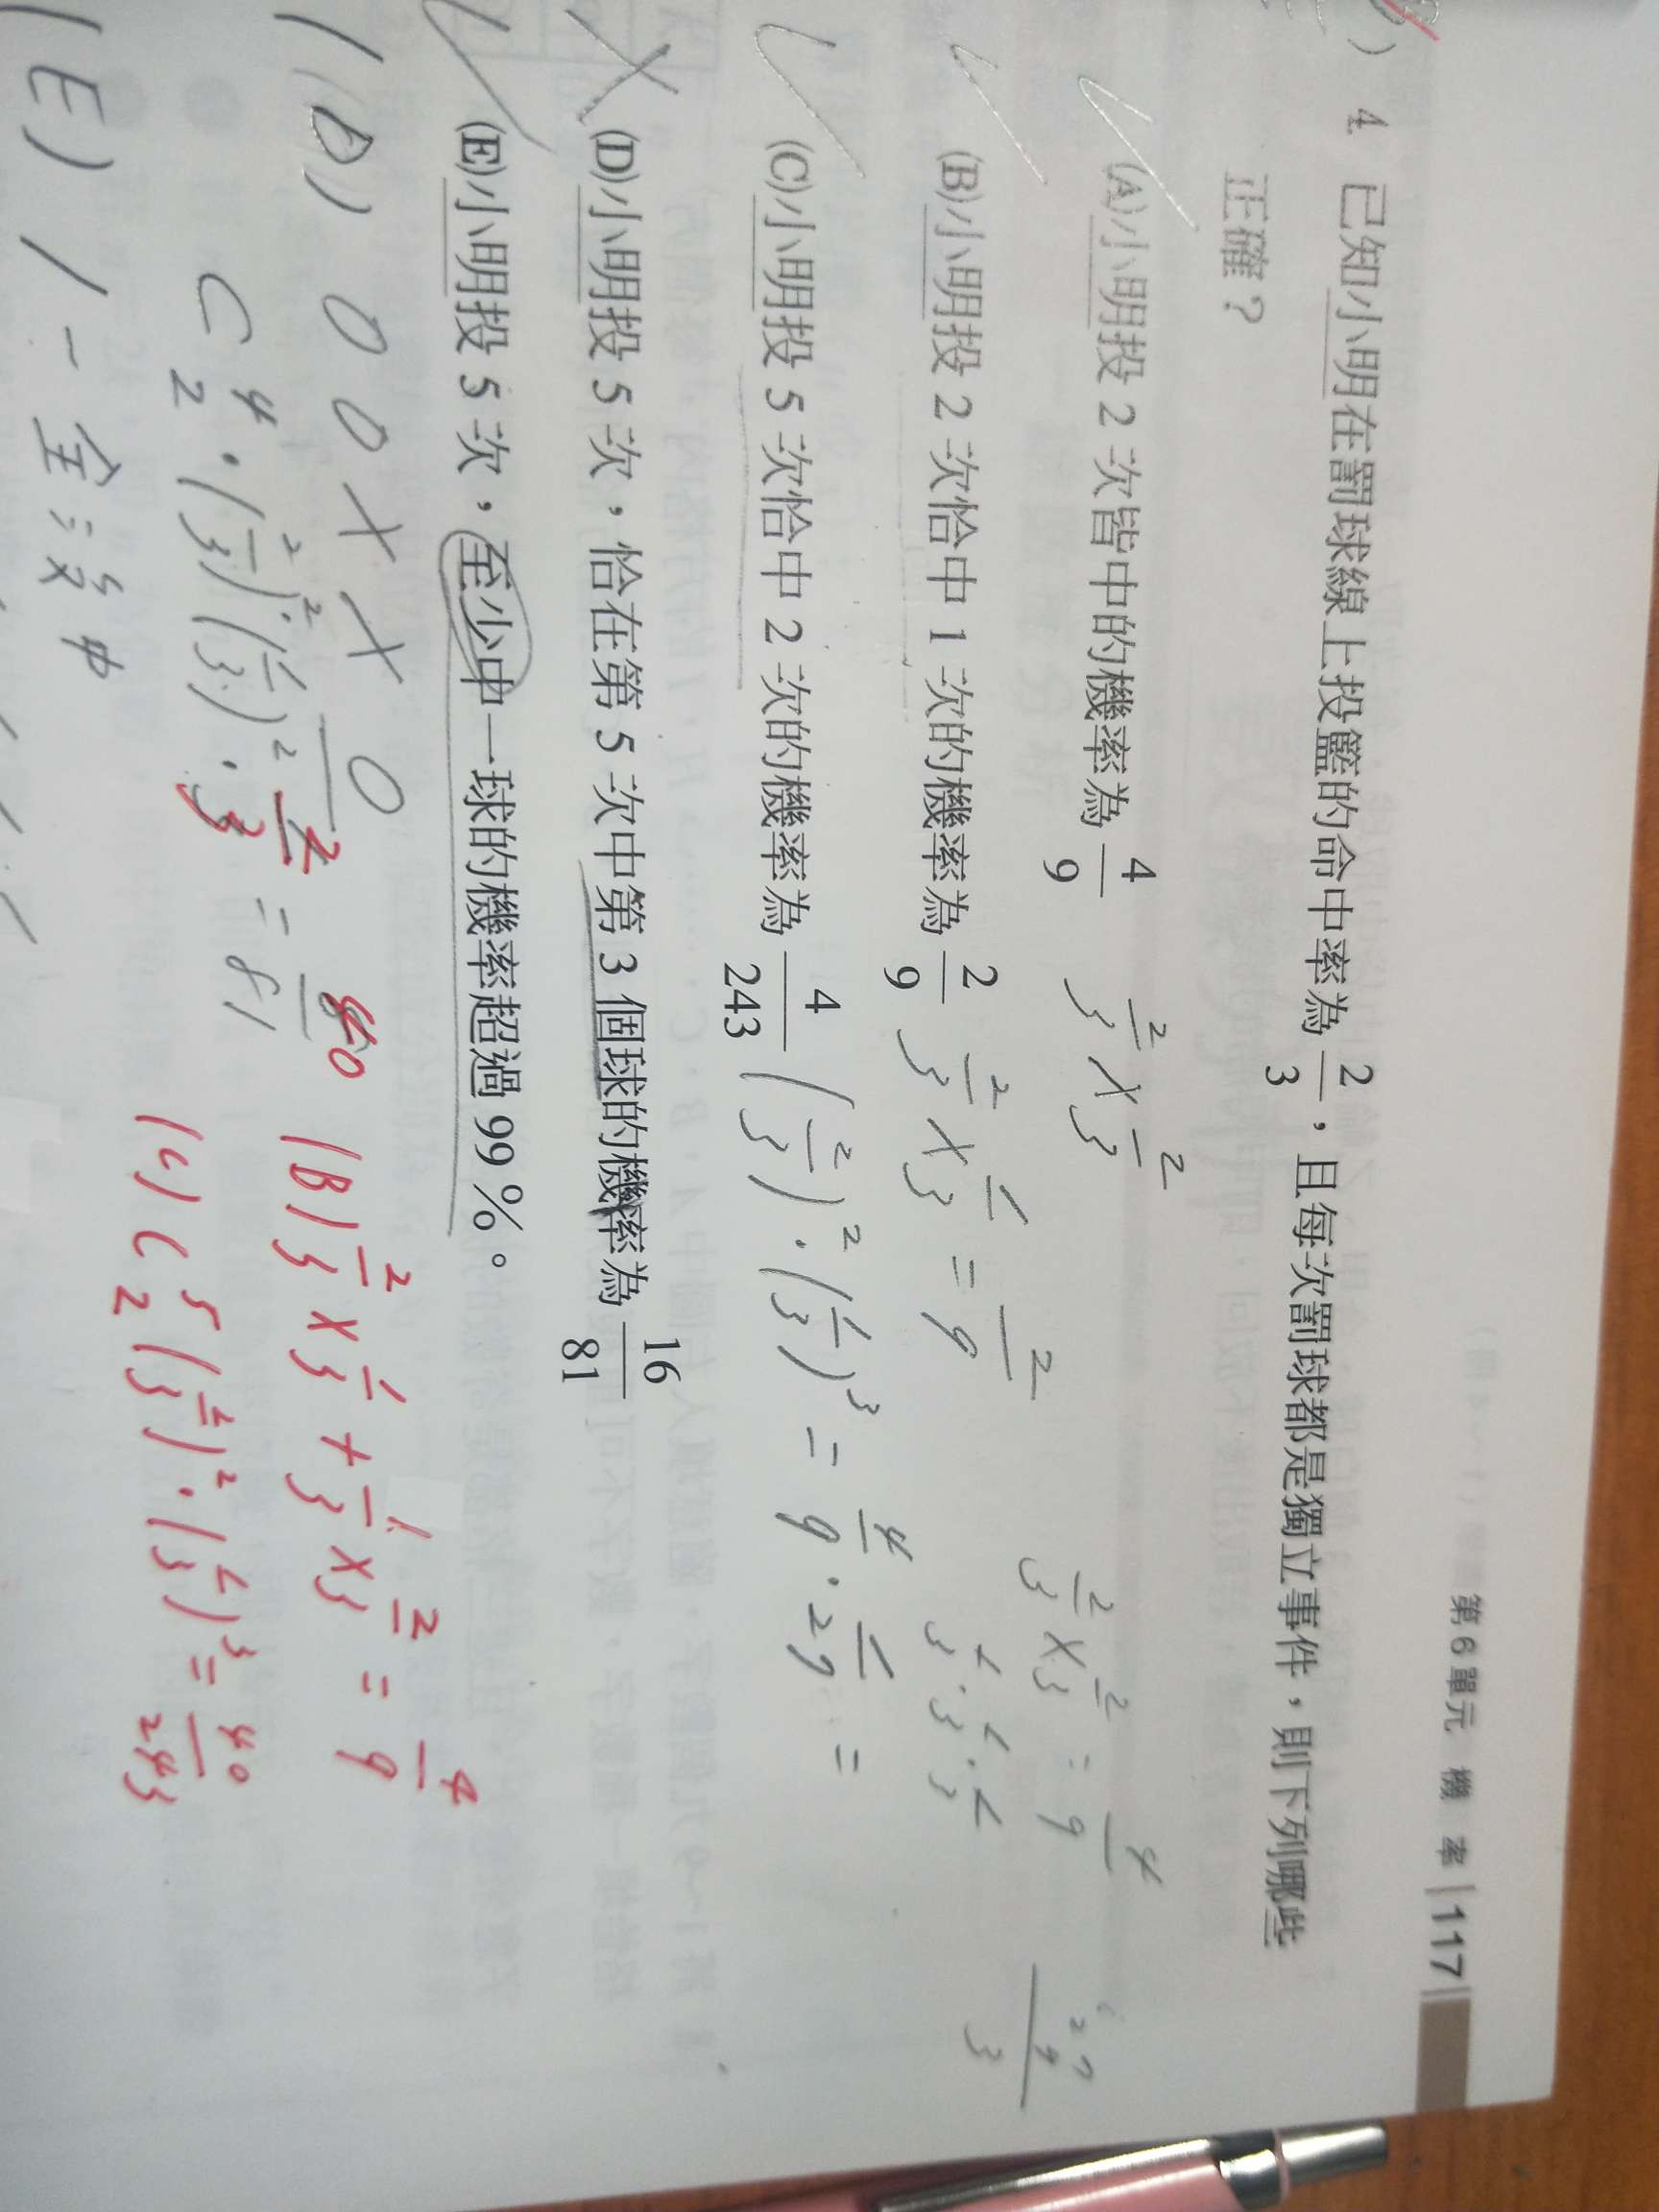 第6單元 機 率 117
) 4. 已知小明在罰球線上投籃的命中率為 2/3，且每次罰球都是獨立事件，則下列哪些
正確？
(A)小明投 2 次皆中的機率為 4/9 2/3 × 2/3
2/3 × 2/3 = 4/9
(B)小明投 2 次恰中 1 次的機率為 2/9 2/3 × 1/3 = 2/9
1/3 · 1/3 · 1/3
(C)小明投 5 次恰中 2 次的機率為 4/243 (2/3)² · (1/3)³ = 4/9 · 1/29 =
(D)小明投 5 次，恰在第 5 次中第 3 個球的機率為 16/81
(E)小明投 5 次，至少中一球的機率超過 99 %。
(D) O O X X O
C⁴₂ · (2/3)² · (1/3)² · 2/3 = 40/81
(B) 2/3 × 1/3 + 1/3 × 2/3 = 4/9
(C) C⁵₂ (2/3)² · (1/3)³ = 40/243
(E) 1 - 全沒中